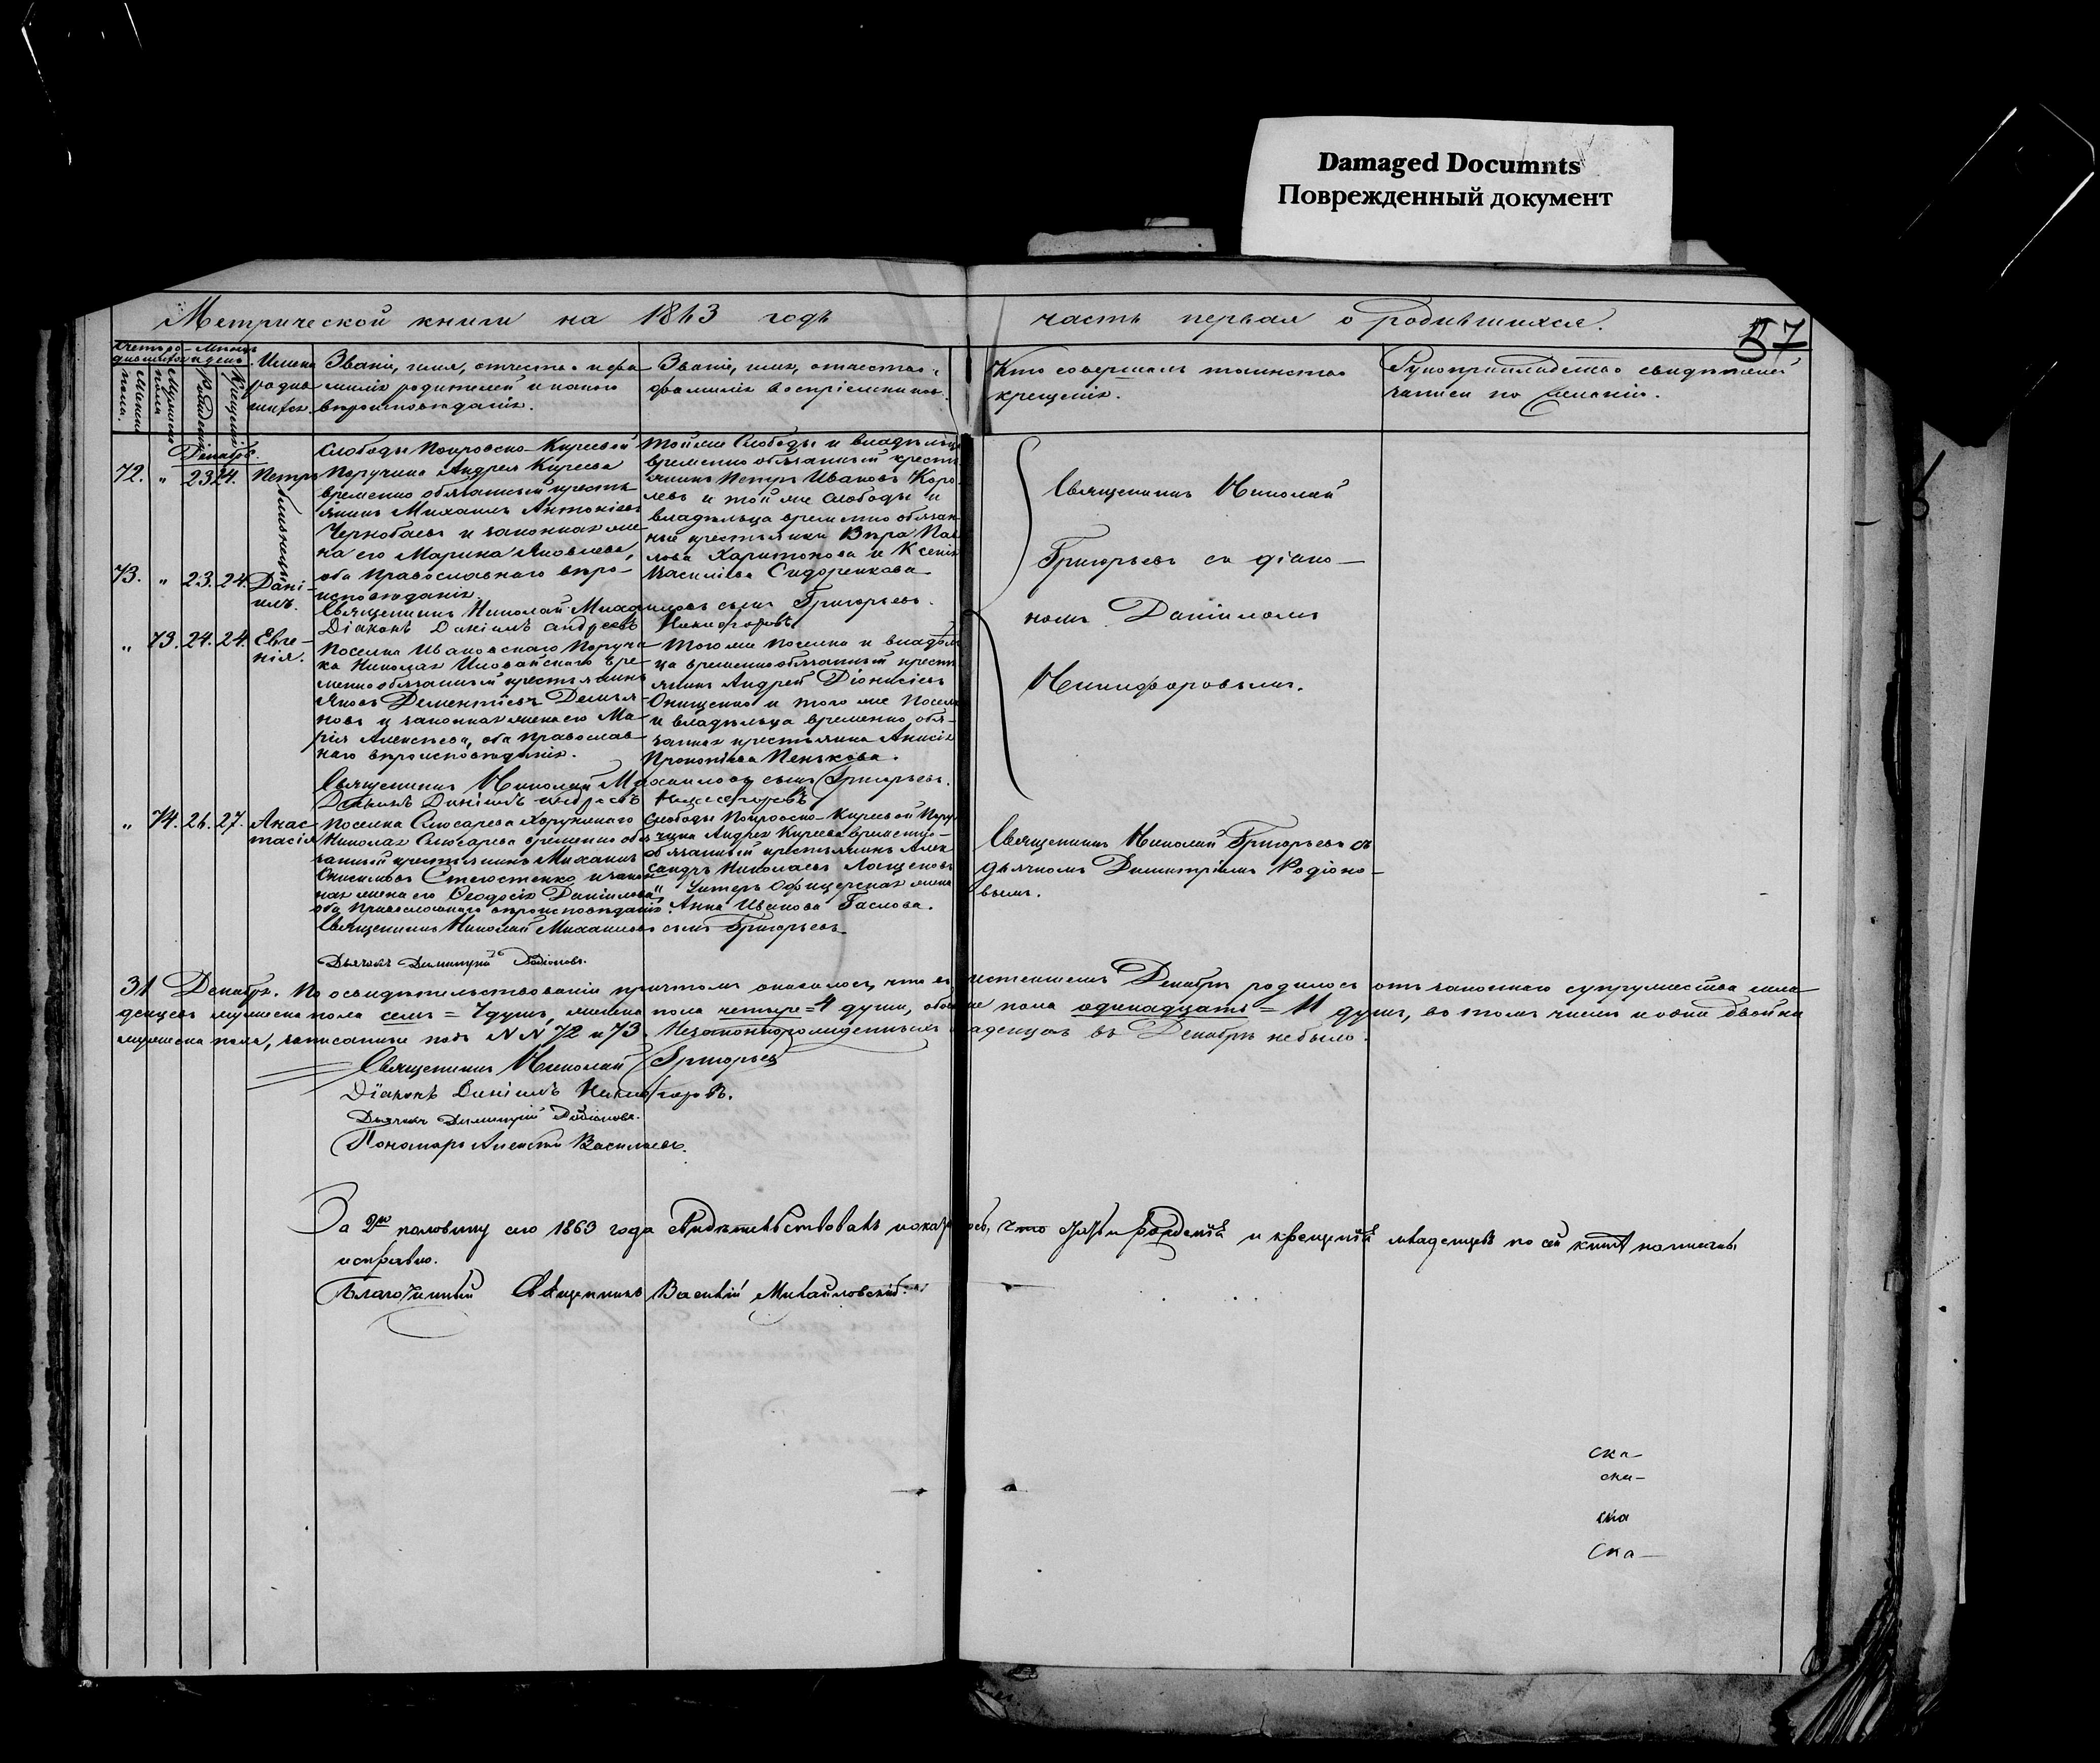 Damaged Documnts
Поврежденный документ
Метрической книги на 1863 годъ
часть первая о родившихся.
57
Счетъ ро-
дившихся
Мѣсяцъ
и день
Мужеска
пола.
Женска
пола.
Рожденія
Крещенія
Имена
родив-
шихся.
Званіе, имя, отчество и фа-
милія родителей и какого
вѣроисповѣданія.
Званіе, имя, отчество и
фамилія воспріемниковъ.
Кто совершалъ таинство
крещенія.
Рукоприкладство свидѣтелей
записи по желанію.
Декабрь.
72. „ 23. 24. Петръ
близнецы
Слободы Покровско-Киреевой
Поручика Андрея Киреева
временно обязанный кресть-
янинъ Михаилъ Антоніевъ
Чернобаевъ и законная же-
на его Марина Яковлева,
оба Православнаго вѣро-
исповѣданія.
Той же Слободы и владѣльца
временно обязанный кресть-
янинъ Петръ Ивановъ Коро-
левъ и той же слободы и
владѣльца временно обязан-
ныя крестьянки Вѣра Пав-
лова Харитонова и Ксенія
Василіева Сидоренкова
73. „ 23. 24. Дані-
илъ.
Священникъ Николай Михаиловъ сынъ Григорьевъ.
Діаконъ Даніилъ Андреевъ Никифоровъ
Священникъ Николай
Григорьевъ съ діако-
номъ Даніиломъ
Никифоровымъ.
„ 73. 24. 24. Евге-
нія.
Поселка Ивановскаго Поручи-
ка Николая Иловайскаго вре-
менно обязанный крестьянинъ
Яковъ Дементіевъ Демья-
новъ и законная жена его Ма-
рія Алексѣева, оба православ-
наго вѣроисповѣданія.
Того же поселка и владѣль-
ца временно обязанный кресть-
янинъ Андрей Діонисіевъ
Онищенко и того же Поселка
и владѣльца временно обя-
занная крестьянка Анисія
Прокопіева Пенькова.
Священникъ Николай Михаиловъ сынъ Григорьевъ.
Діаконъ Даніилъ Андреевъ Никифоровъ
„ 74. 26. 27. Анас-
тасія
Поселка Слюсарева Хорунжаго
Николая Слюсарева временно обя-
занный крестьянинъ Михаилъ
Онисимовъ Стегостенко и закон-
ная жена его Ѳеодосія Даніилова,
оба Православнаго вѣроисповѣданія.
Слободы Покровско-Киреевой Пору-
чика Андрея Киреева временно-
обязанный крестьянинъ Алек-
сандръ Николаевъ Лащеновъ
и Унтеръ Офицерская жена
Анна Иванова Гаслова.
Священникъ Николай Михаиловъ сынъ Григорьевъ
Дьячекъ Димитрій Родіоновъ.
Священникъ Николай Григорьевъ съ
дьячкомъ Димитріемъ Родіоно-
вымъ.
31 Декабря. По освидѣтельствованіи причтомъ оказалось, что въ истекшемъ Декабрѣ родилось отъ законнаго супружества мла-
денцевъ мужеска пола семь = 7 душъ, женска пола четыре = 4 души, обоего пола одинадцать = 11 душъ, въ томъ числѣ и одни двойни
мужеска пола, записанные подъ NN 72 и 73. Незаконнорожденныхъ младенцовъ въ Декабрѣ небыло.
Священникъ Николай Григорьевъ
Діаконъ Даніилъ Никифоровъ.
Дьячекъ Димитрій Родіоновъ.
Пономарь Алексѣй Васильевъ.
За 2ю половину сего 1863 года свидѣтельствовалъ и оказалось, что статьи рожденій и крещеній младенцевъ по сей книгѣ написаны
исправно.
Благочинный Священникъ Василій Михайловскій.
ска-
ска-
ска
Ска-